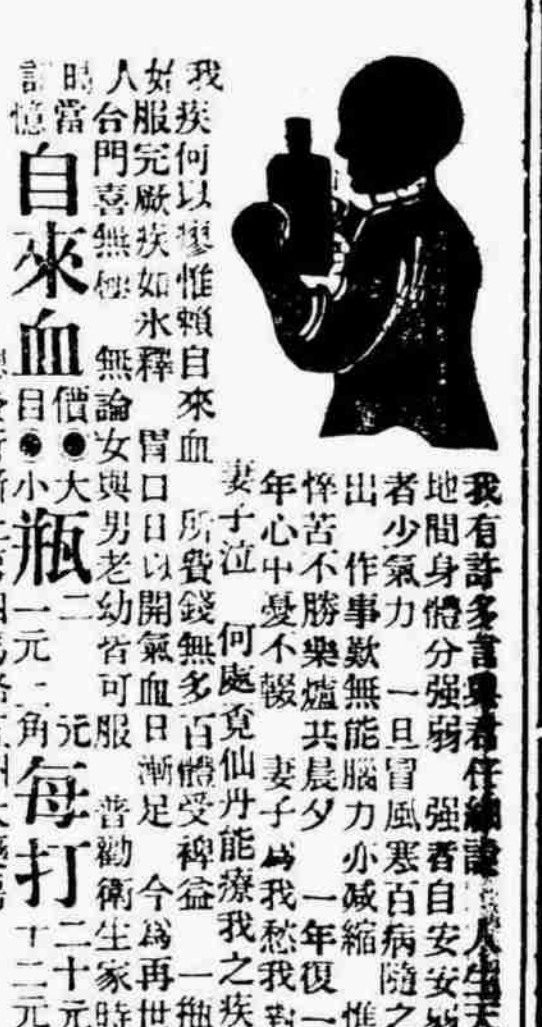 我有許多言與君仔細讀 人生天
地間身體分强弱 强者自安安弱
者少氣力 一旦冒風寒百病隨之
出 作事歎無能腦力亦减縮 惟
悴苦不勝藥爐共晨夕 一年復一
年心中憂不輟 妻子為我愁我對
妻子泣 何處覓仙丹能療我之疾
我疾何以瘳惟賴自來血 所費錢無多百體受裨益 一瓶
始服完厥疾如氷釋 胃口日以開氣血日漸足 今為再世
人合門喜無極 無論女與男老幼皆可服 普勸衛生家時
時當記憶
自來血
價目
大瓶二元
小瓶一元二角
每打二十元
十二元